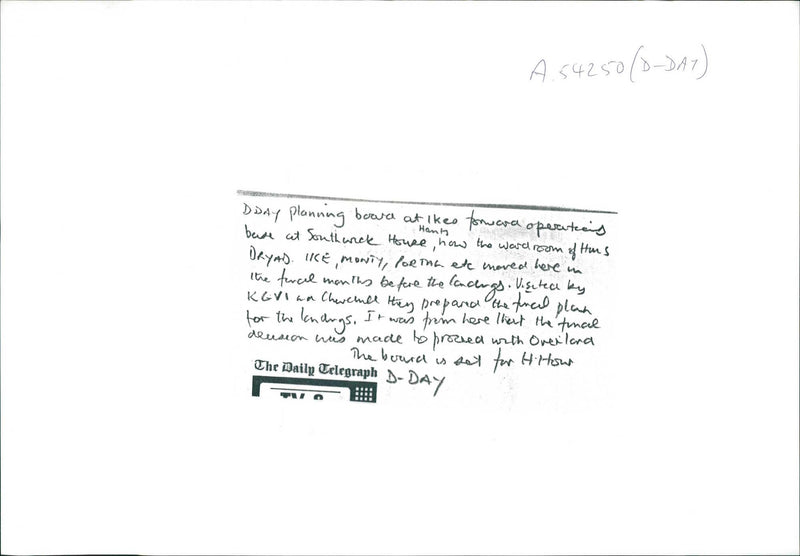 A.54250 (D-DAY)
DDAY planning board at Ikes forward operations
Hants
base at Southwick House, now the wardroom of HMS
DRYAD. IKE, MONTY, PORTAL etc moved here in
the final months before the landings. Visited by
KGVI and Churchill they prepared the final plans
for the landings. It was from here that the final
decision was made to proceed with Overlord
The board is set for H-Hour
The Daily Telegraph
D-DAY
TV &